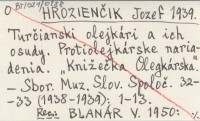 O HROZIENČIK Jozef 1939.
Turčianski olejkári a ich
osudy. Protiolejkárske naria-
denia. "Knižečka Olegkárska"
- Sbor. Muz. Slov. Spoloč. 32-
-33 (1938-1939): 1-13.
Rec.: BLANÁR V. 1950: